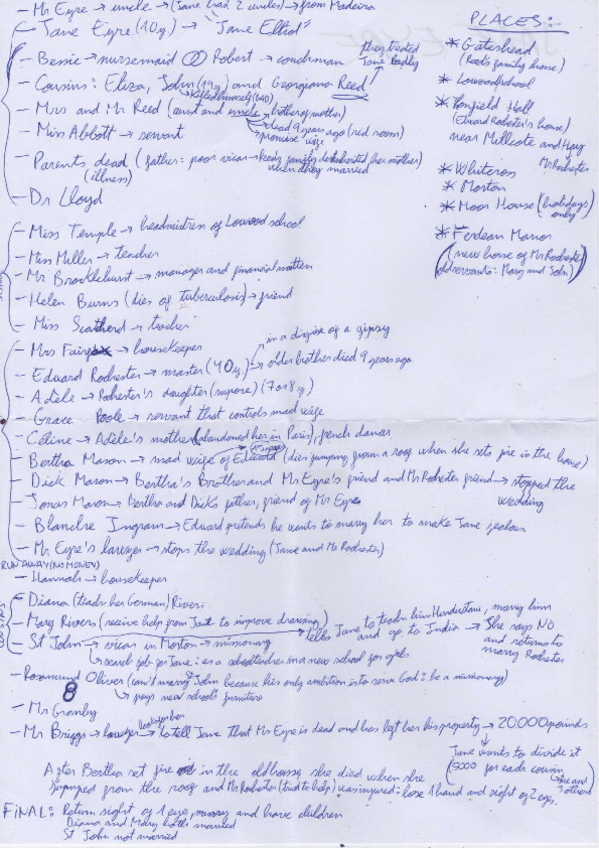 - Mr Eyre → uncle → (Jane had 2 uncles) → from Madeira
- Jane Eyre (10y.) → "Jane Elliot"
- Bessie → nursemaid Robert → coachman
they treated Jane badly
- Cousins: Eliza, John (19y) and Georgiana Reed
killed himself
- Mrs and Mr Reed (aunt and uncle brother of mother)
dead 9 years ago (red room)
promise wife
- Miss Abbott → servant
- Parents dead (father: poor vicar → family disinherited her mother
(illness) when they married
- Dr Lloyd
- Miss Temple → headmistress of Lowood school
- Miss Miller → teacher
- Mr Brocklehurst → manager and financial matters
- Helen Burns (dies of tuberculosis) → friend
- Miss Scatherd → teacher
- Mrs Fairfax → housekeeper
in a disguise of a gipsy
- Eduard Rochester → master (40y.) → older brother died 9 years ago
- Adèle → Rochester's daughter (supose) (7 or 8 y.)
- Grace Poole → servant that controls mad wife
- Céline → Adèle's mother (abandoned her in Paris), french dancer
- Bertha Mason → mad wife of Edward (dies jumping from a roof when she sets fire in the house)
- Dick Mason → Bertha's Brother and Mr Eyre's friend and Mr Rochester friend → stopped the
wedding
- Jonas Mason → Bertha and Dick's father, friend of Mr Eyre
- Blanche Ingram → Eduard pretends he wants to marry her to make Jane jealous
- Mr Eyre's lawyer → stops the wedding (Jane and Mr Rochester)
RUN AWAY (NO MONEY)
- Hannah → housekeeper
- Diana (teach her German) Rivers
- Mary Rivers (receive help from Jane to improve drawing)
- St John → vicar in Morton → missionary
tells Jane to teach him Hindustane, marry him
and go to India → She says NO
and returns to
marry Rochester
search job for Jane: as a schoolteacher in a new school for girls
- Rosamund Oliver (can't marry St John because his only ambition is to serve God: be a missionary)
8
pays new school's furniture
- Mr Granby
- Mr Briggs → lawyer → to tell Jane that Mr Eyre is dead and has left her his property → 20.000 pounds
looks for her
Jane wants to divide it
(5000 for each cousin
she and 3 others)
After Bertha set fire in the old house, she died when she
jumped from the roof and Mr Rochester (tried to help) was injured: lose 1 hand and sight of 2 eyes.
FINAL: Return sight of 1 eye, marry and have children
Diana and Mary both married
St John not married
PLACES:
* Gateshead
(Reed's family house)
* Lowood school
(Eduard Rochester's house)
near Millcote and Hay
Mr Rochester
* Whitcross
* Morton
* Moor House (holidays
only)
* Ferdean Manor
(new house of Mr Rochester
old servants: Mary and John)